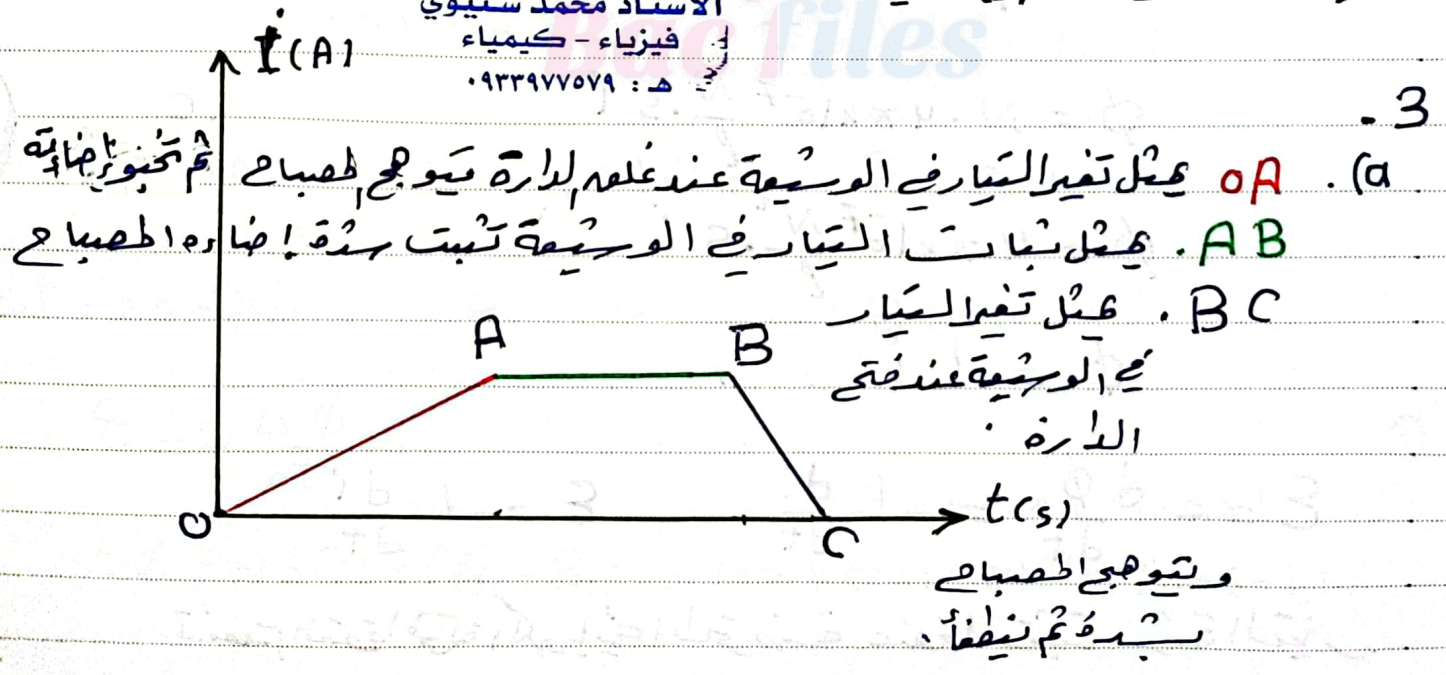 الأستاذ محمد سنيوي
فيزياء - كيمياء
هـ : ٠٩٣٣٩٧٧٥٧٩
Bac files
i(A)
3 -
a). OA يمثل تغير التيار في الوشيعة عند غلق الدارة يتوهج المصباح ثم تخبو إضاءته
AB. يمثل ثبات التيار في الوشيعة تثبت شدة إضاءة المصباح
BC. يمثل تغير التيار
A
B
في الوشيعة عند فتح
الدارة
t(s)
O
C
ويتوهج المصباح
بشدة ثم ينطفأ.